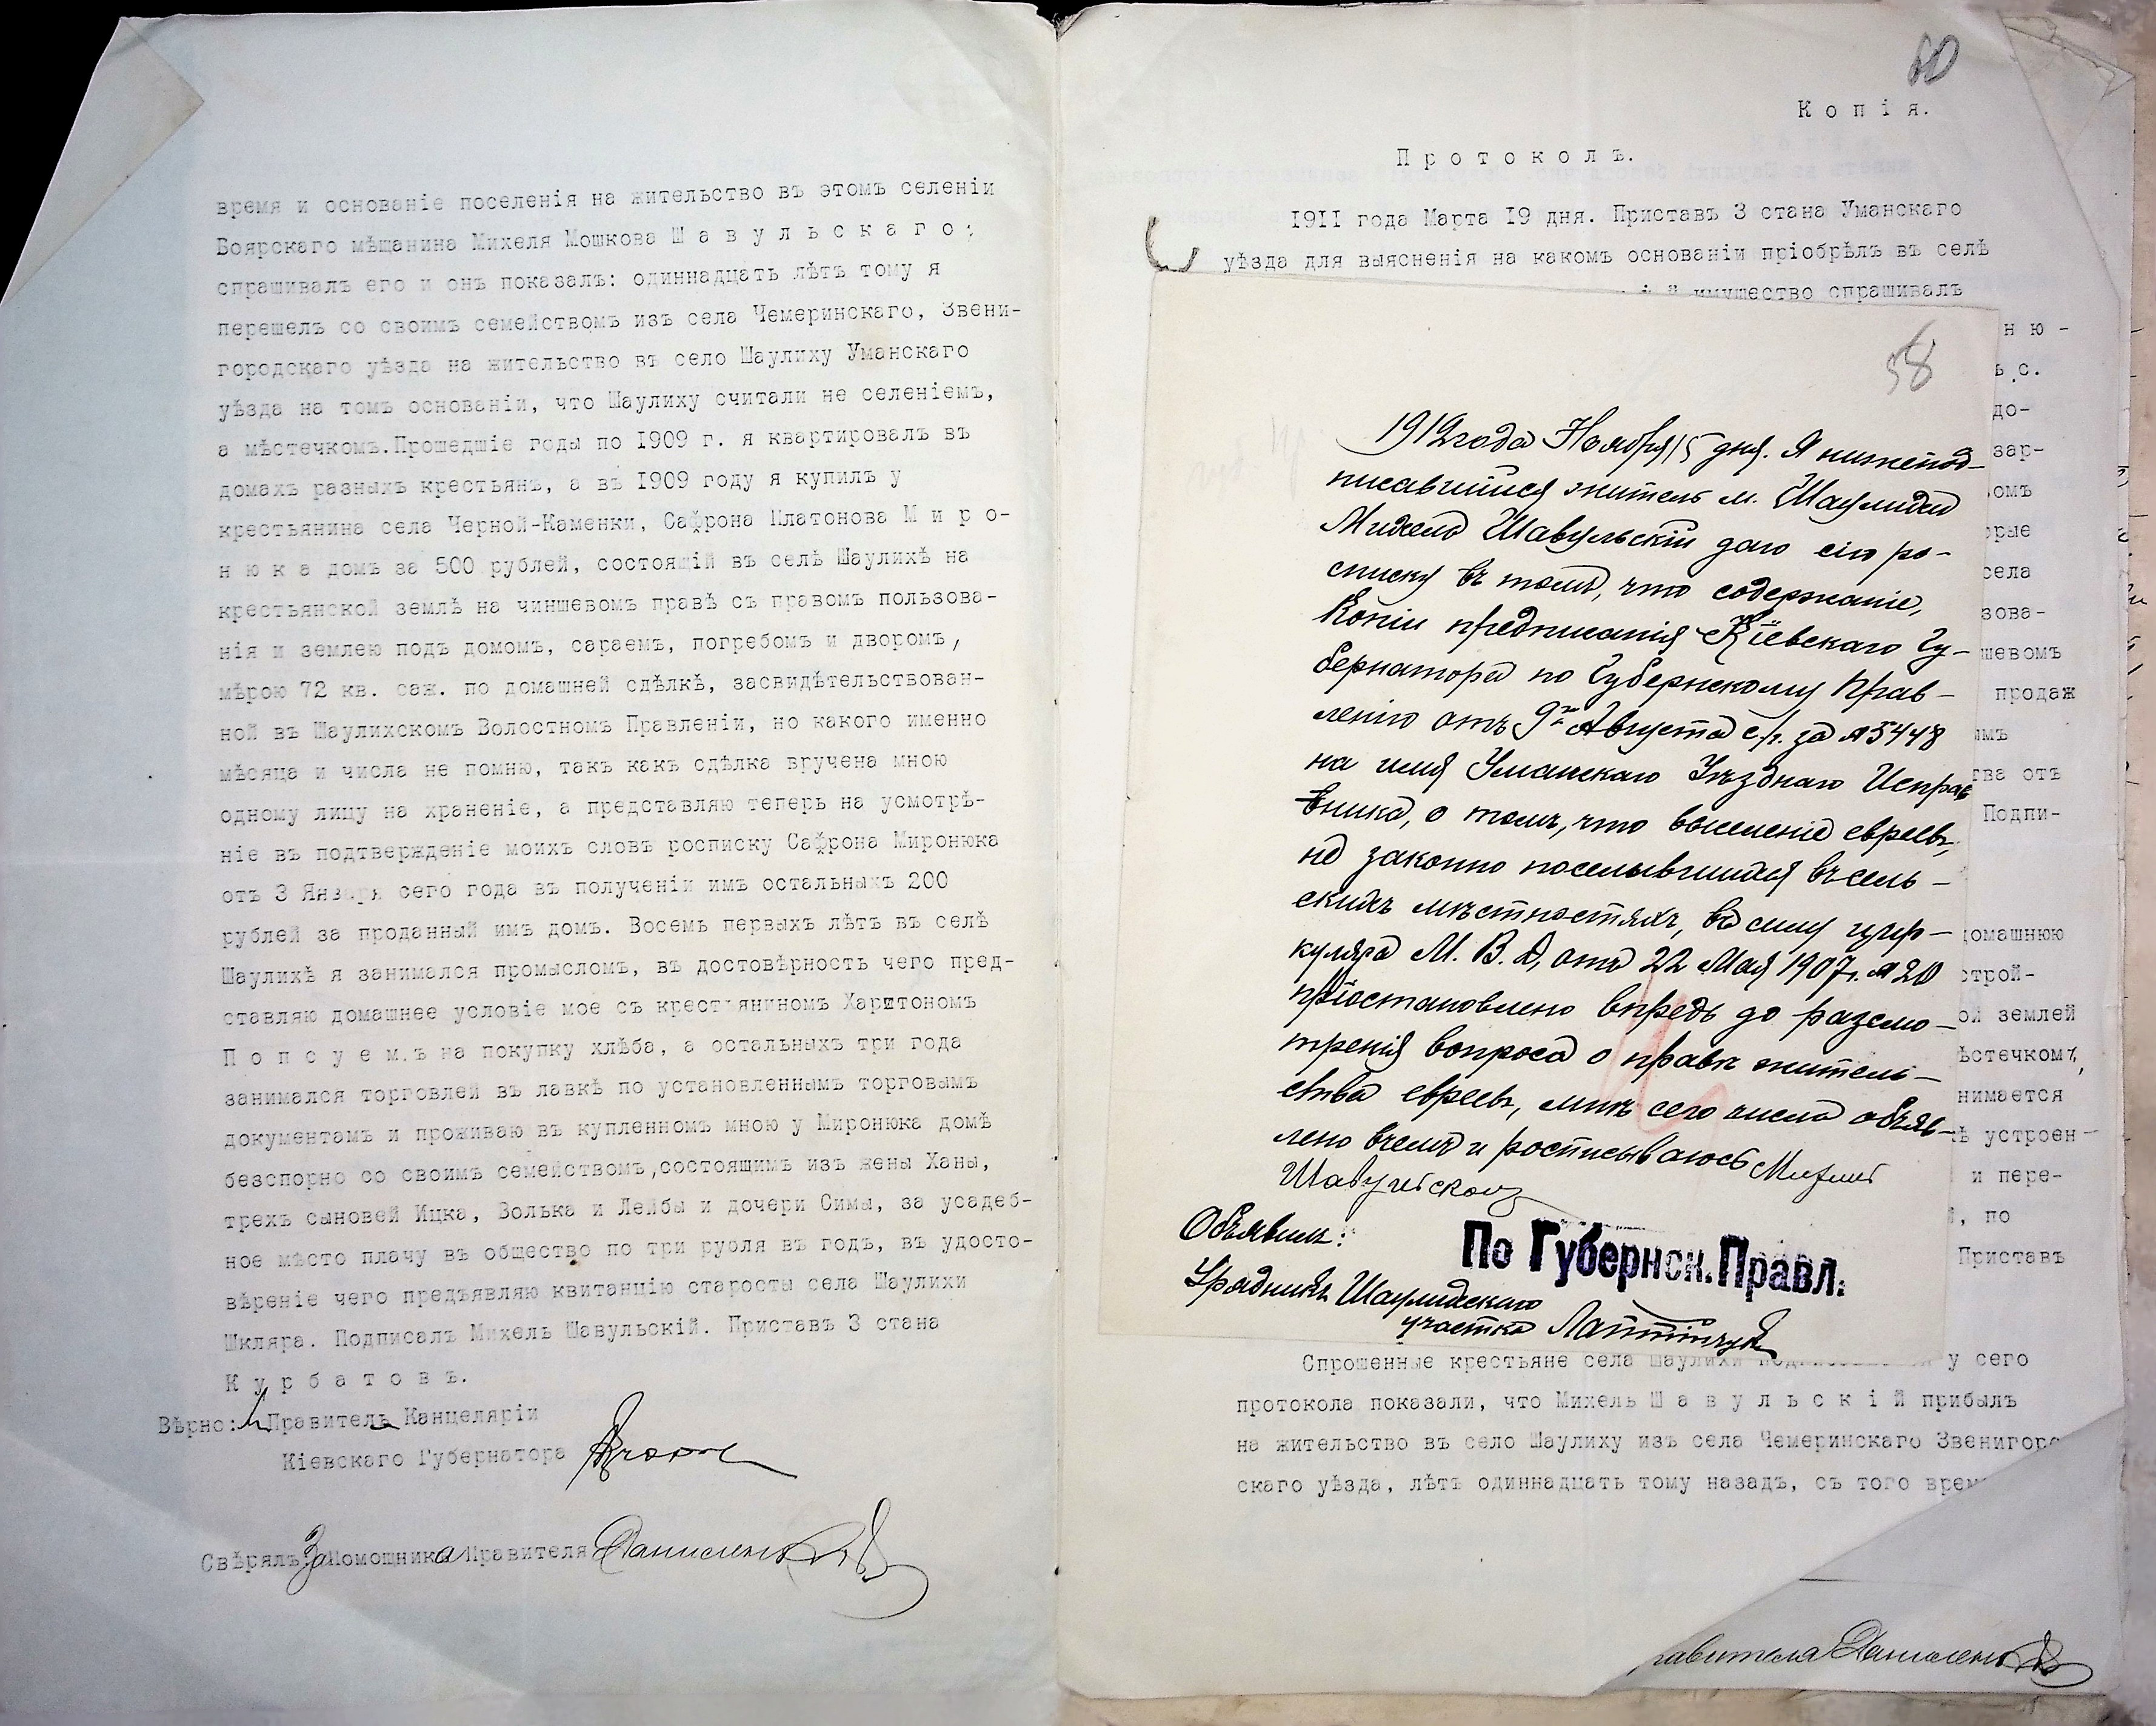 время и основаніе поселенія на жительство въ этомъ селеніи
Боярскаго мѣщанина Михеля Мошкова Ш а в у л ь с к а г о ;
спрашивалъ его и онъ показалъ: одиннадцать лѣтъ тому я
перешелъ со своимъ семействомъ изъ села Чемеринскаго, Звени-
городскаго уѣзда на жительство въ село Шаулиху Уманскаго
уѣзда на томъ основаніи, что Шаулиху считали не селеніемъ,
а мѣстечкомъ.Прошедшіе годы по 1909 г. я квартировалъ въ
домахъ разныхъ крестьянъ, а въ 1909 году я купилъ у
крестьянина села Черной-Каменки, Сафрона Платонова М и р о-
н ю к а домъ за 500 рублей, состоящій въ селѣ Шаулихѣ на
крестьянской землѣ на чиншевомъ правѣ съ правомъ пользова-
нія и землею подъ домомъ, сараемъ, погребомъ и дворомъ,
мѣрою 72 кв. саж. по домашней сдѣлкѣ, засвидѣтельствован-
ной въ Шаулихскомъ Волостномъ Правленіи, но какого именно
мѣсяца и числа не помню, такъ какъ сдѣлка вручена мною
одному лицу на храненіе, а представляю теперь на усмотрѣ-
ніе въ подтвержденіе моихъ словъ росписку Сафрона Миронюка
отъ 3 Января сего года въ полученіи имъ остальныхъ 200
рублей за проданный имъ домъ. Восемь первыхъ лѣтъ въ селѣ
Шаулихѣ я занимался промысломъ, въ достовѣрность чего пред-
ставляю домашнее условіе мое съ крестьяниномъ Харитономъ
П о п с у е м ъ на покупку хлѣба, а остальныхъ три года
занимался торговлей въ лавкѣ по установленнымъ торговымъ
документамъ и проживаю въ купленномъ мною у Миронюка домѣ
безспорно со своимъ семействомъ,состоящимъ изъ жены Ханы,
трехъ сыновей Ицка, Волька и Лейбы и дочери Симы, за усадеб-
ное мѣсто плачу въ общество по три рубля въ годъ, въ удосто-
вѣреніе чего предъявляю квитанцію старосты села Шаулихи
Шкляра. Подписалъ Михель Шавульскій. Приставъ 3 стана
К у р б а т о в ъ.
Вѣрно: Правитель Канцеляріи
Кіевскаго Губернатора
Свѣрялъ: За Помощника Правителя
60
К о п і я.
П р о т о к о л ъ.
1911 года Марта 19 дня. Приставъ 3 стана Уманскаго
уѣзда для выясненія на какомъ основаніи пріобрѣлъ въ селѣ
имущество спрашивалъ
н ю -
ъ с.
до-
зар-
омъ
рые
села
зова-
шевомъ
продаж
имъ
тва отъ
Подпи-
домашнюю
строй-
ой землей
ѣстечкомъ,
нимается
ѣ устроен-
и пере-
, по
Приставъ
58
1912 года Ноября 15 дня. Я нижепод-
писавшийся житель м. Шаулихи
Михель Шавульскій даю сію ро-
списку въ томъ, что содержаніе,
копіи предписанія Кіевскаго Гу-
бернатора по Губернскому Прав-
ленію отъ 9го Августа с/г. за № 5448
на имя Уманскаго Уѣзднаго Исправ
вника, о томъ, что выселеніе евреевъ,
не законно поселывшихся въ сель-
скихъ мѣстностяхъ, въ силу цир-
куляра М. В. Д, отъ 22 Мая 1907 г. № 20
пріостановлено впредь до разсмо-
тренія вопроса о правѣ житель-
ства евреевъ, мнѣ сего числа объяв-
лено въ чемъ и росписываюсь Михель
Шавульской
Объявилъ:
Урядникъ Шаулихскаго
участка
По Губернск. Правл.
Спрошенные крестьяне села Шаулихи у сего
протокола показали, что Михель Ш а в у л ь с к і й прибылъ
на жительство въ село Шаулиху изъ села Чемеринскаго Звенигоро
скаго уѣзда, лѣтъ одиннадцать тому назадъ, съ того врем
равителя